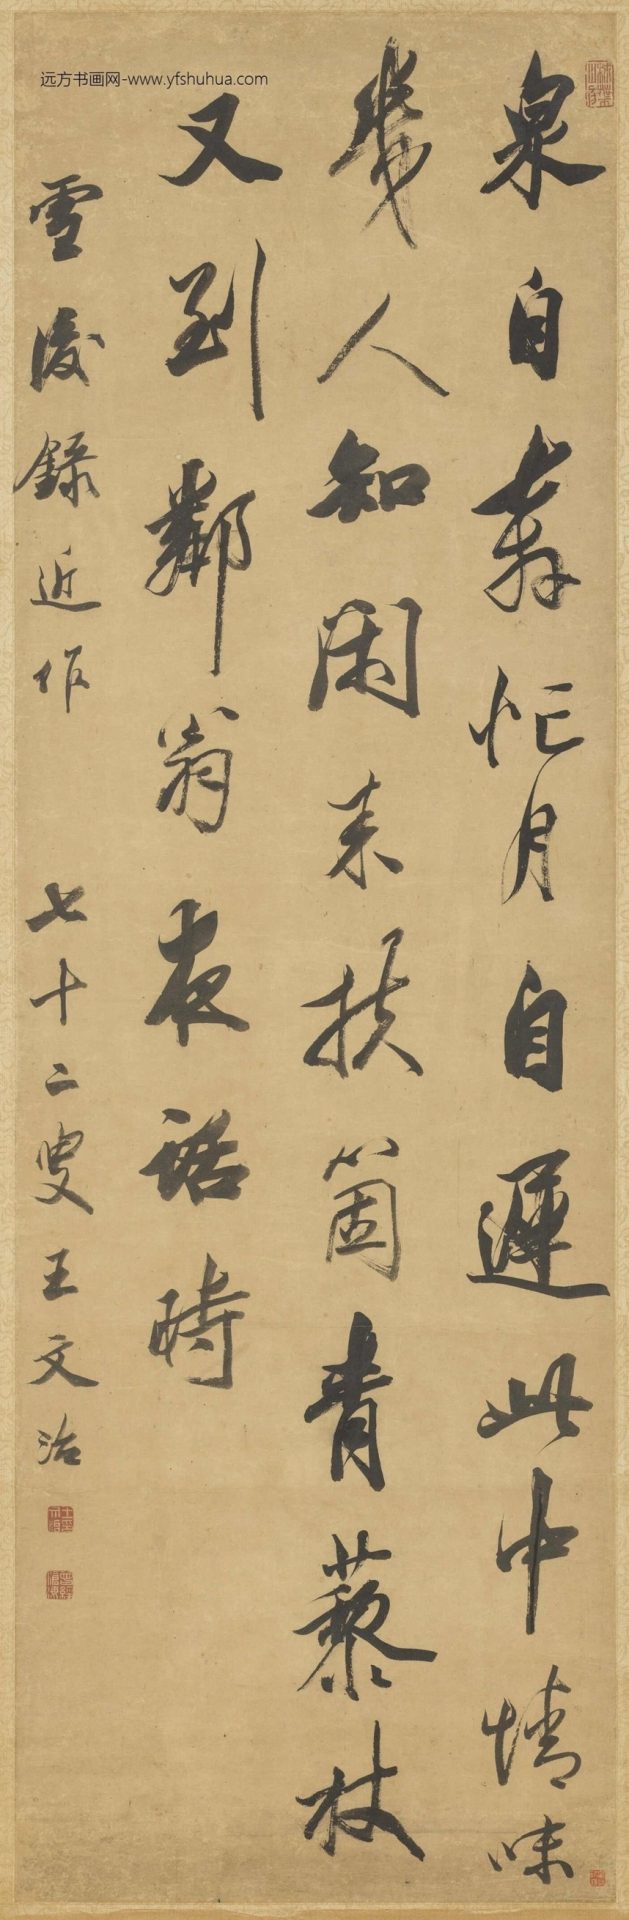 泉自奔忙月自遲此中情味
幾人知閑來扶箇青藜杖
又到鄰翁夜話時
雪後錄近作 七十二叟王文治
远方书画网-www.yfshuhua.com